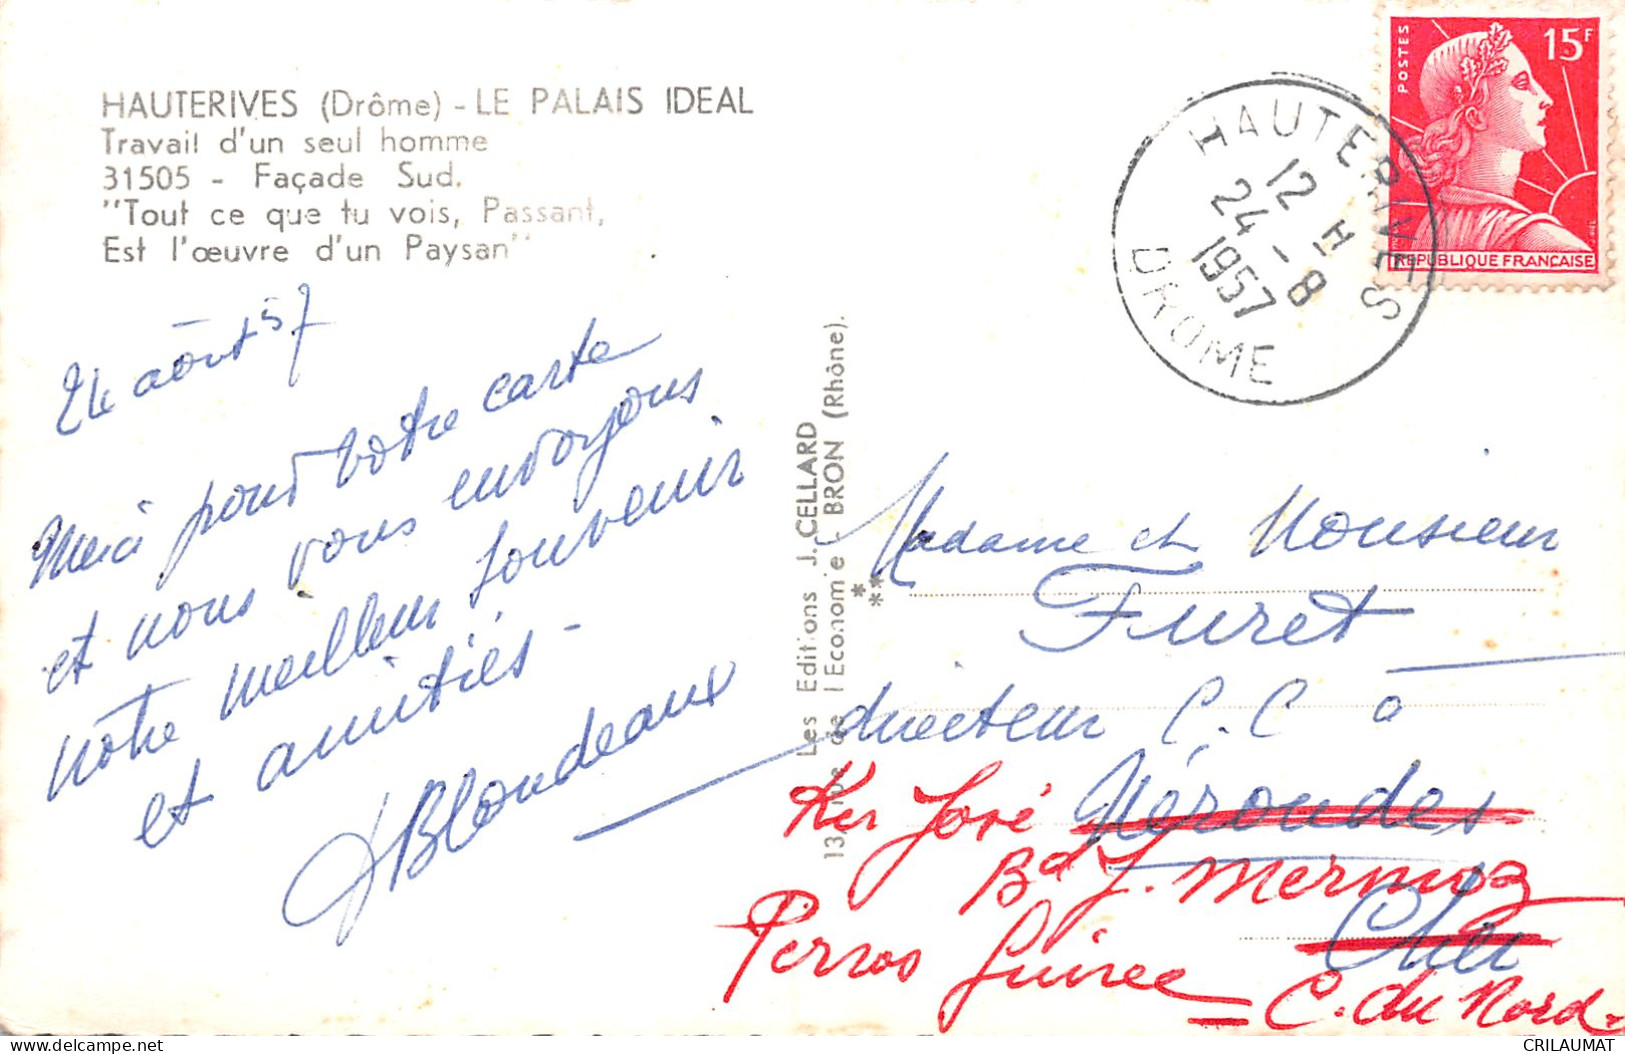 HAUTERIVES (Drôme) - LE PALAIS IDEAL
Travail d'un seul homme
31505 - Façade Sud.
"Tout ce que tu vois, Passant,
Est l'œuvre d'un Paysan"
24 août 57
Merci pour votre carte
et nous vous envoyons
notre meilleur souvenir
et amitiés -
JBlondeaux
Les Editions J. CELLARD
de l'Economie - BRON (Rhône).
HAUTERIVES
12 H
24 - 8
1957
DROME
POSTES
15F
REPUBLIQUE FRANÇAISE
Madame et Monsieur
Furet
directeur C.C à
Nérondes
Cher
Ker José
Bd J. Mermoz
Perros Guirec
C. du Nord
CRILAUMAT